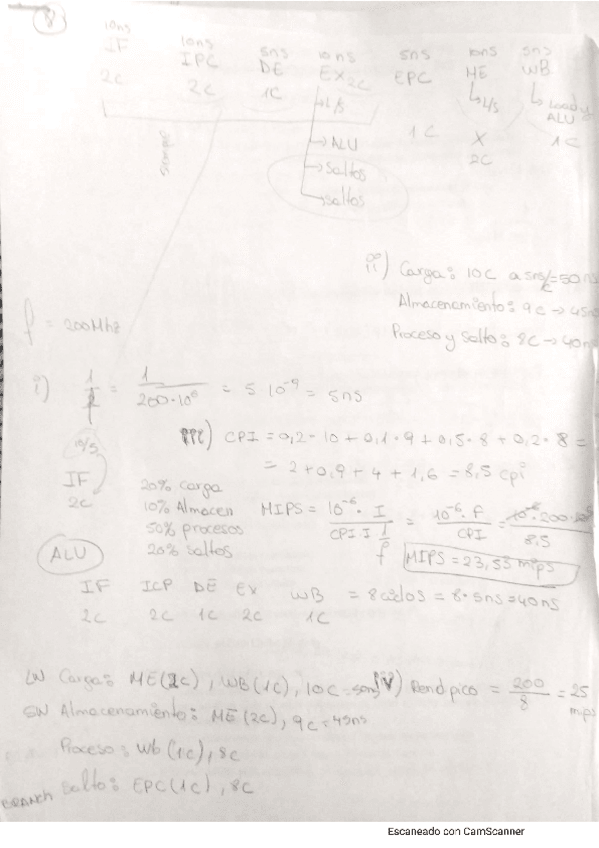 8
10ns 10ns 5ns 10ns 5ns 10ns 5ns
IF IPC DE EX 2C EPC ME WB
2C 2C 1C 1C 2C 1C
siempre
L/S
ALU
Saltos
Saltos
L/S
X
Load y
ALU
ii) Carga: 10C a 5ns/c = 50ns
Almacenamiento: 9C → 45ns
Proceso y salto: 8C → 40ns
f = 200Mhz
i) 1/f = 1/200·10⁶ = 5 10⁻⁹ = 5ns
iii) CPI = 0,2·10 + 0,1·9 + 0,5·8 + 0,2·8 =
= 2 + 0,9 + 4 + 1,6 = 8,5 cpi
10/5
IF
2C
20% carga
10% Almacen
50% procesos
20% saltos
MIPS = 10⁻⁶·I / CPI·I 1/f = 10⁻⁶·f / CPI = 10⁻⁶·200·10⁶ / 8,5
MIPS = 23,53 mips
ALU
IF ICP DE EX WB = 8 ciclos = 8·5ns = 40ns
2C 2C 1C 2C 1C
LW Carga: ME(2C), WB(1C), 10C = 50ns
iv) Rend pico = 200/8 = 25 mips
SW Almacenamiento: ME(2C), 9C = 45ns
Proceso: Wb (1C), 8C
BRANCH Salto: EPC(1C), 8C
Escaneado con CamScanner